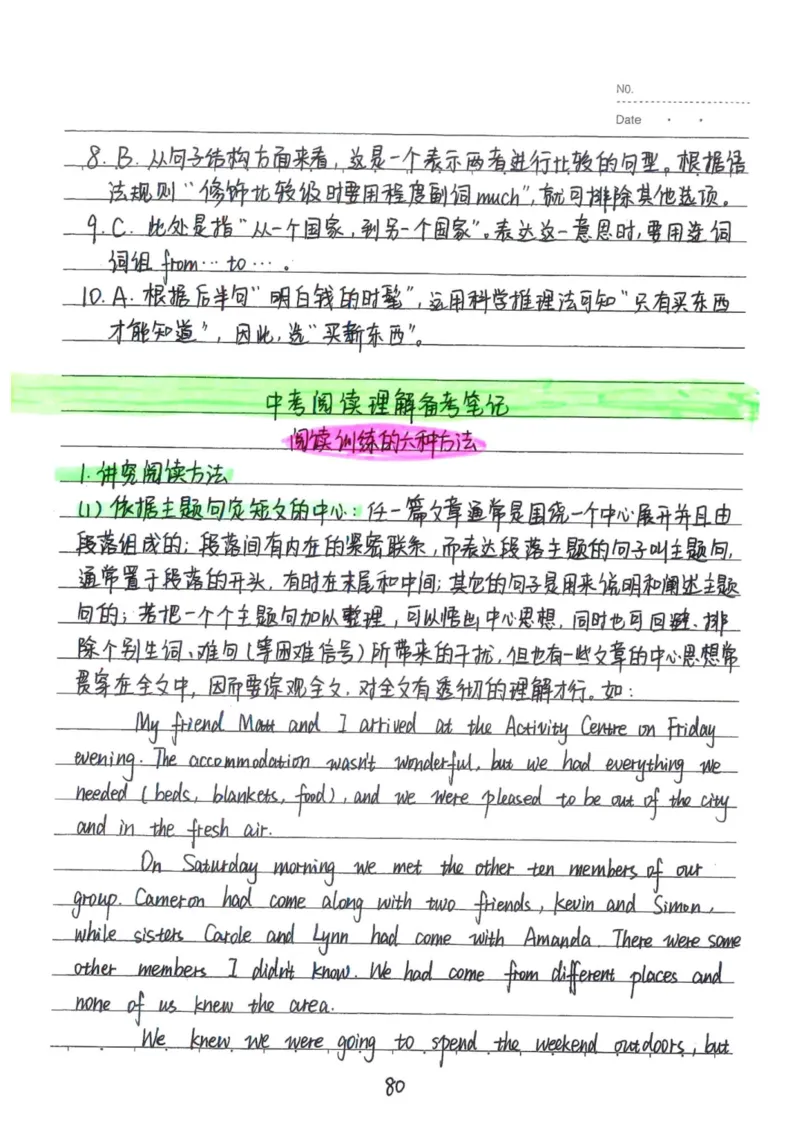 N0.
Date
8. B. 从句子结构方面来看，这是一个表示两者进行比较的句型。根据语
法规则“修饰比较级时要用程度副词much”，就可排除其他选项。
9. C. 此处是指“从一个国家，到另一个国家”。表达这一意思时，要用连词
词组 from… to … 。
10. A. 根据后半句“明白钱的时髦”，运用科学推理法可知“只有买东西
才能知道”，因此，选“买新东西”。
中考阅读理解备考笔记
阅读训练的六种方法
1. 讲究阅读方法
(1) 依据主题句定短文的中心：任一篇文章通常是围绕一个中心展开并且由
段落组成的；段落间有内在的紧密联系，而表达段落主题的句子叫主题句，
通常置于段落的开头，有时在末尾和中间；其它的句子是用来说明和阐述主题
句的；若把一个个主题句加以整理，可以悟出中心思想，同时也可回避、排
除个别生词、难句（等困难信号）所带来的干扰，但也有一些文章的中心思想常
贯穿在全文中，因而要综观全文，对全文有透彻的理解才行。如：
My friend Matt and I arrived at the Activity Centre on Friday
evening. The accommodation wasn't wonderful, but we had everything we
needed (beds, blankets, food), and we were pleased to be out of the city
and in the fresh air.
On Saturday morning we met the other ten members of our
group. Cameron had come along with two friends, kevin and Simon,
while sisters Carole and Lynn had come with Amanda. There were some
other members I didn't know. We had come from different places and
none of us knew the area.
We knew we were going to spend the weekend outdoors, but
80